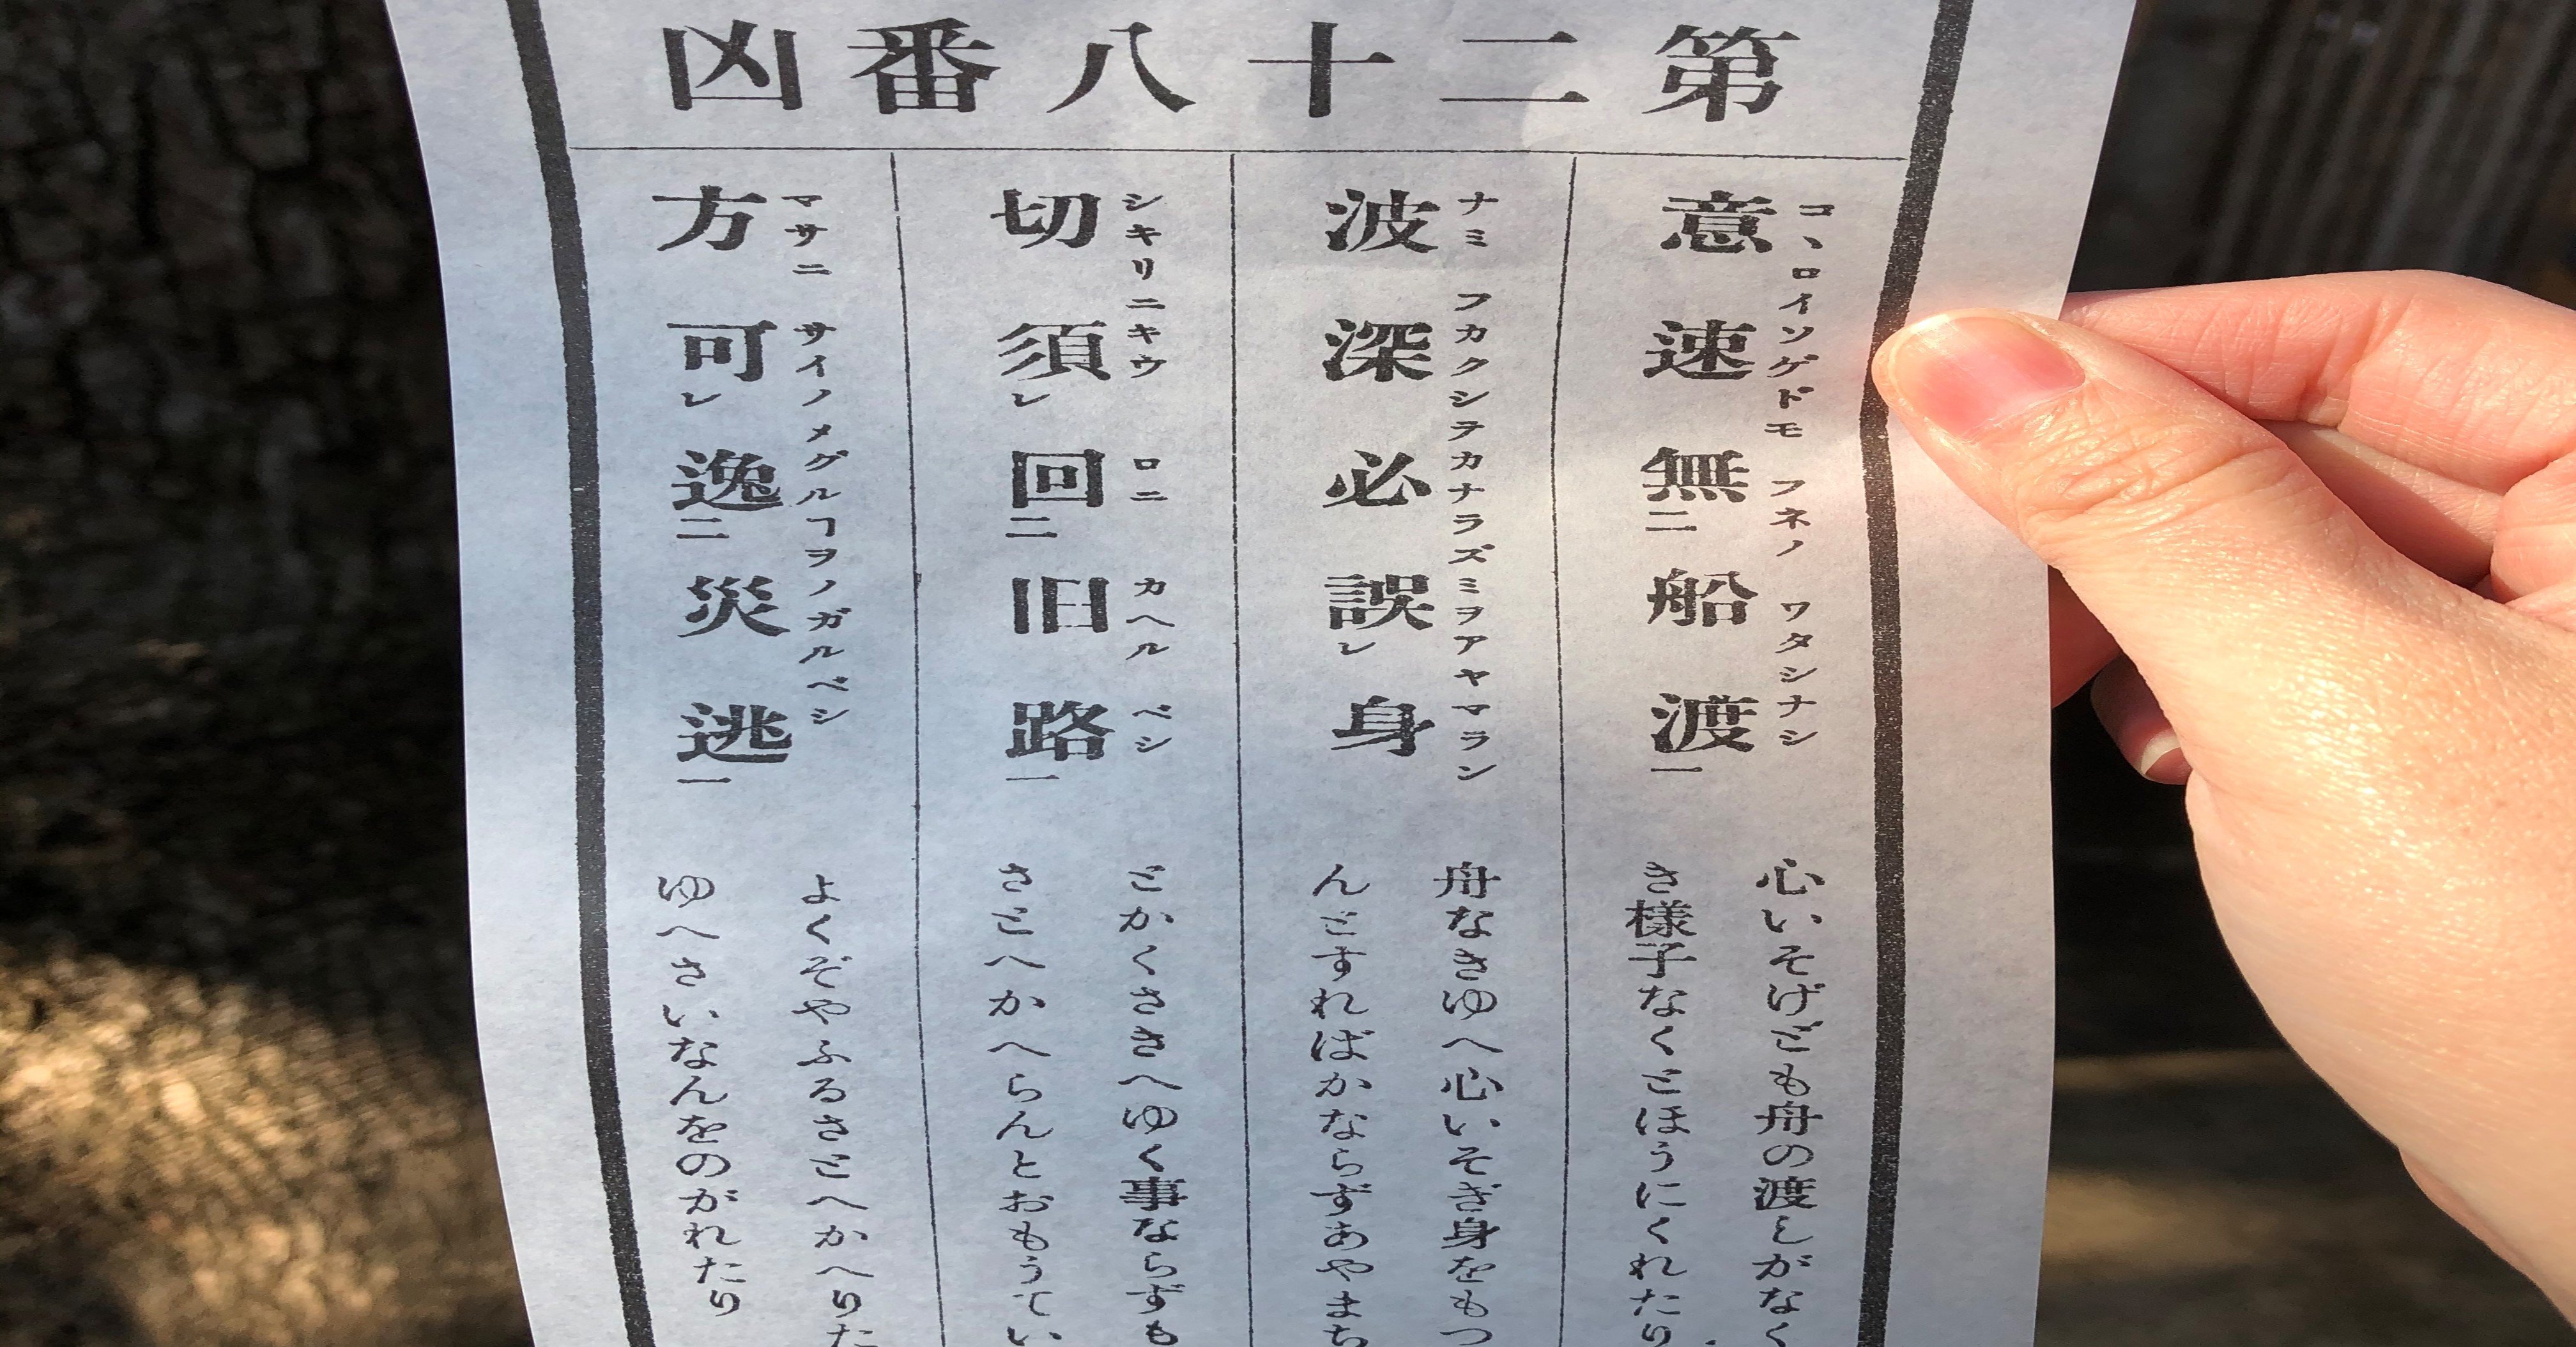 第二十八番凶
意速無二船渡一
コヽロイソゲドモ フネノ ワタシナシ
波深必誤レ身
ナミ フカクシテカナラズミヲアヤマラン
切須レ回二旧路一
シキリニキウロニ カヘル ベシ
方可レ逸二災逃一
マサニ サイノメグルヿヲノガルベシ
心いそげども舟の渡しがなく
き様子なくとほうにくれたり
舟なきゆへ心いそぎ身をもつ
んとすればかならずあやまち
とかくさきへゆく事ならずも
さとへかへらんとおもうてい
よくぞやふるさとへかへりた
ゆへさいなんをのがれたり